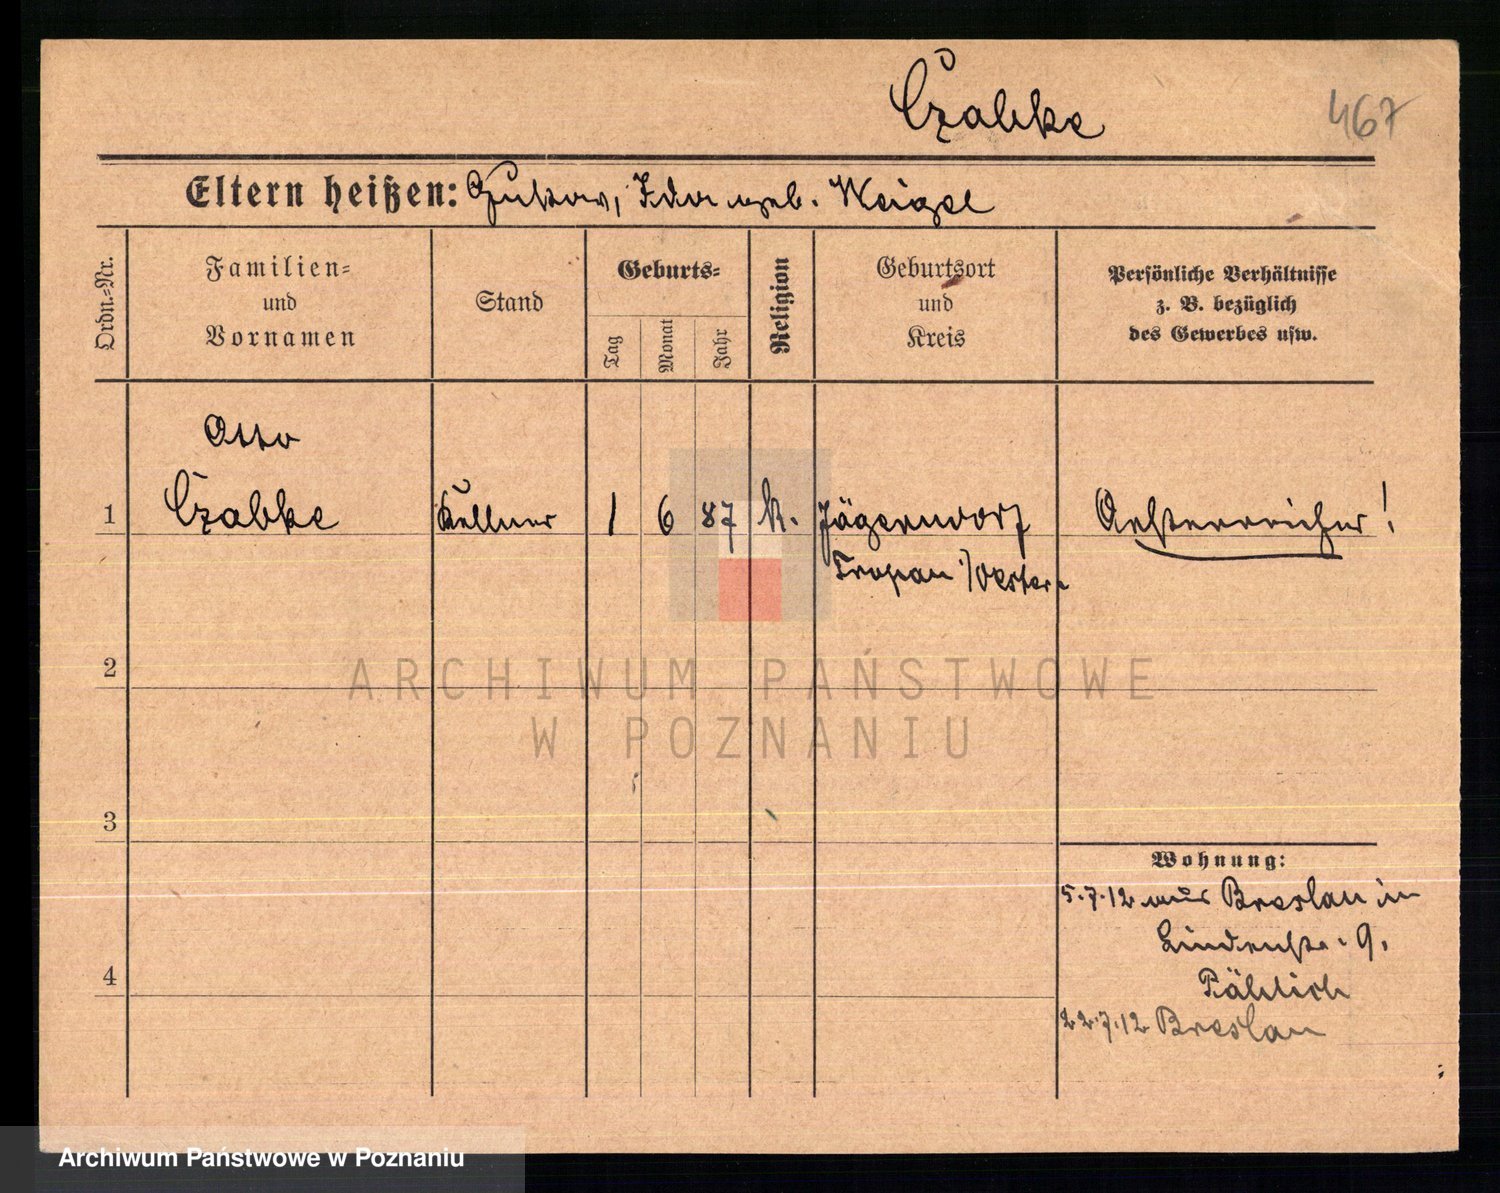 Czabke
467
Eltern heißen: Gustav, Ida geb. Weigel
Ordn.-Nr.
Familien-
und
Vornamen
Stand
Geburts-
Tag
Monat
Jahr
Religion
Geburtsort
und
Kreis
Persönliche Verhältnisse
z. B. bezüglich
des Gewerbes usw.
Otto
1 Czabke Kellner 1 6 87 k. Jägerndorf Oesterreicher!
Troppau /Oester.
2
ARCHIWUM PAŃSTWOWE
W POZNANIU
3
Wohnung:
5.7.12 aus Breslau in
Lindenstr. 9.
4
22.7.12 Breslau
Archiwum Państwowe w Poznaniu